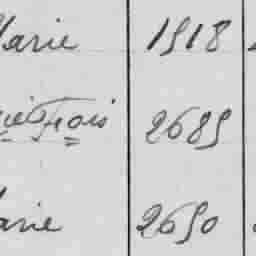 Marie 1918
Frois 2685
Marie 2690